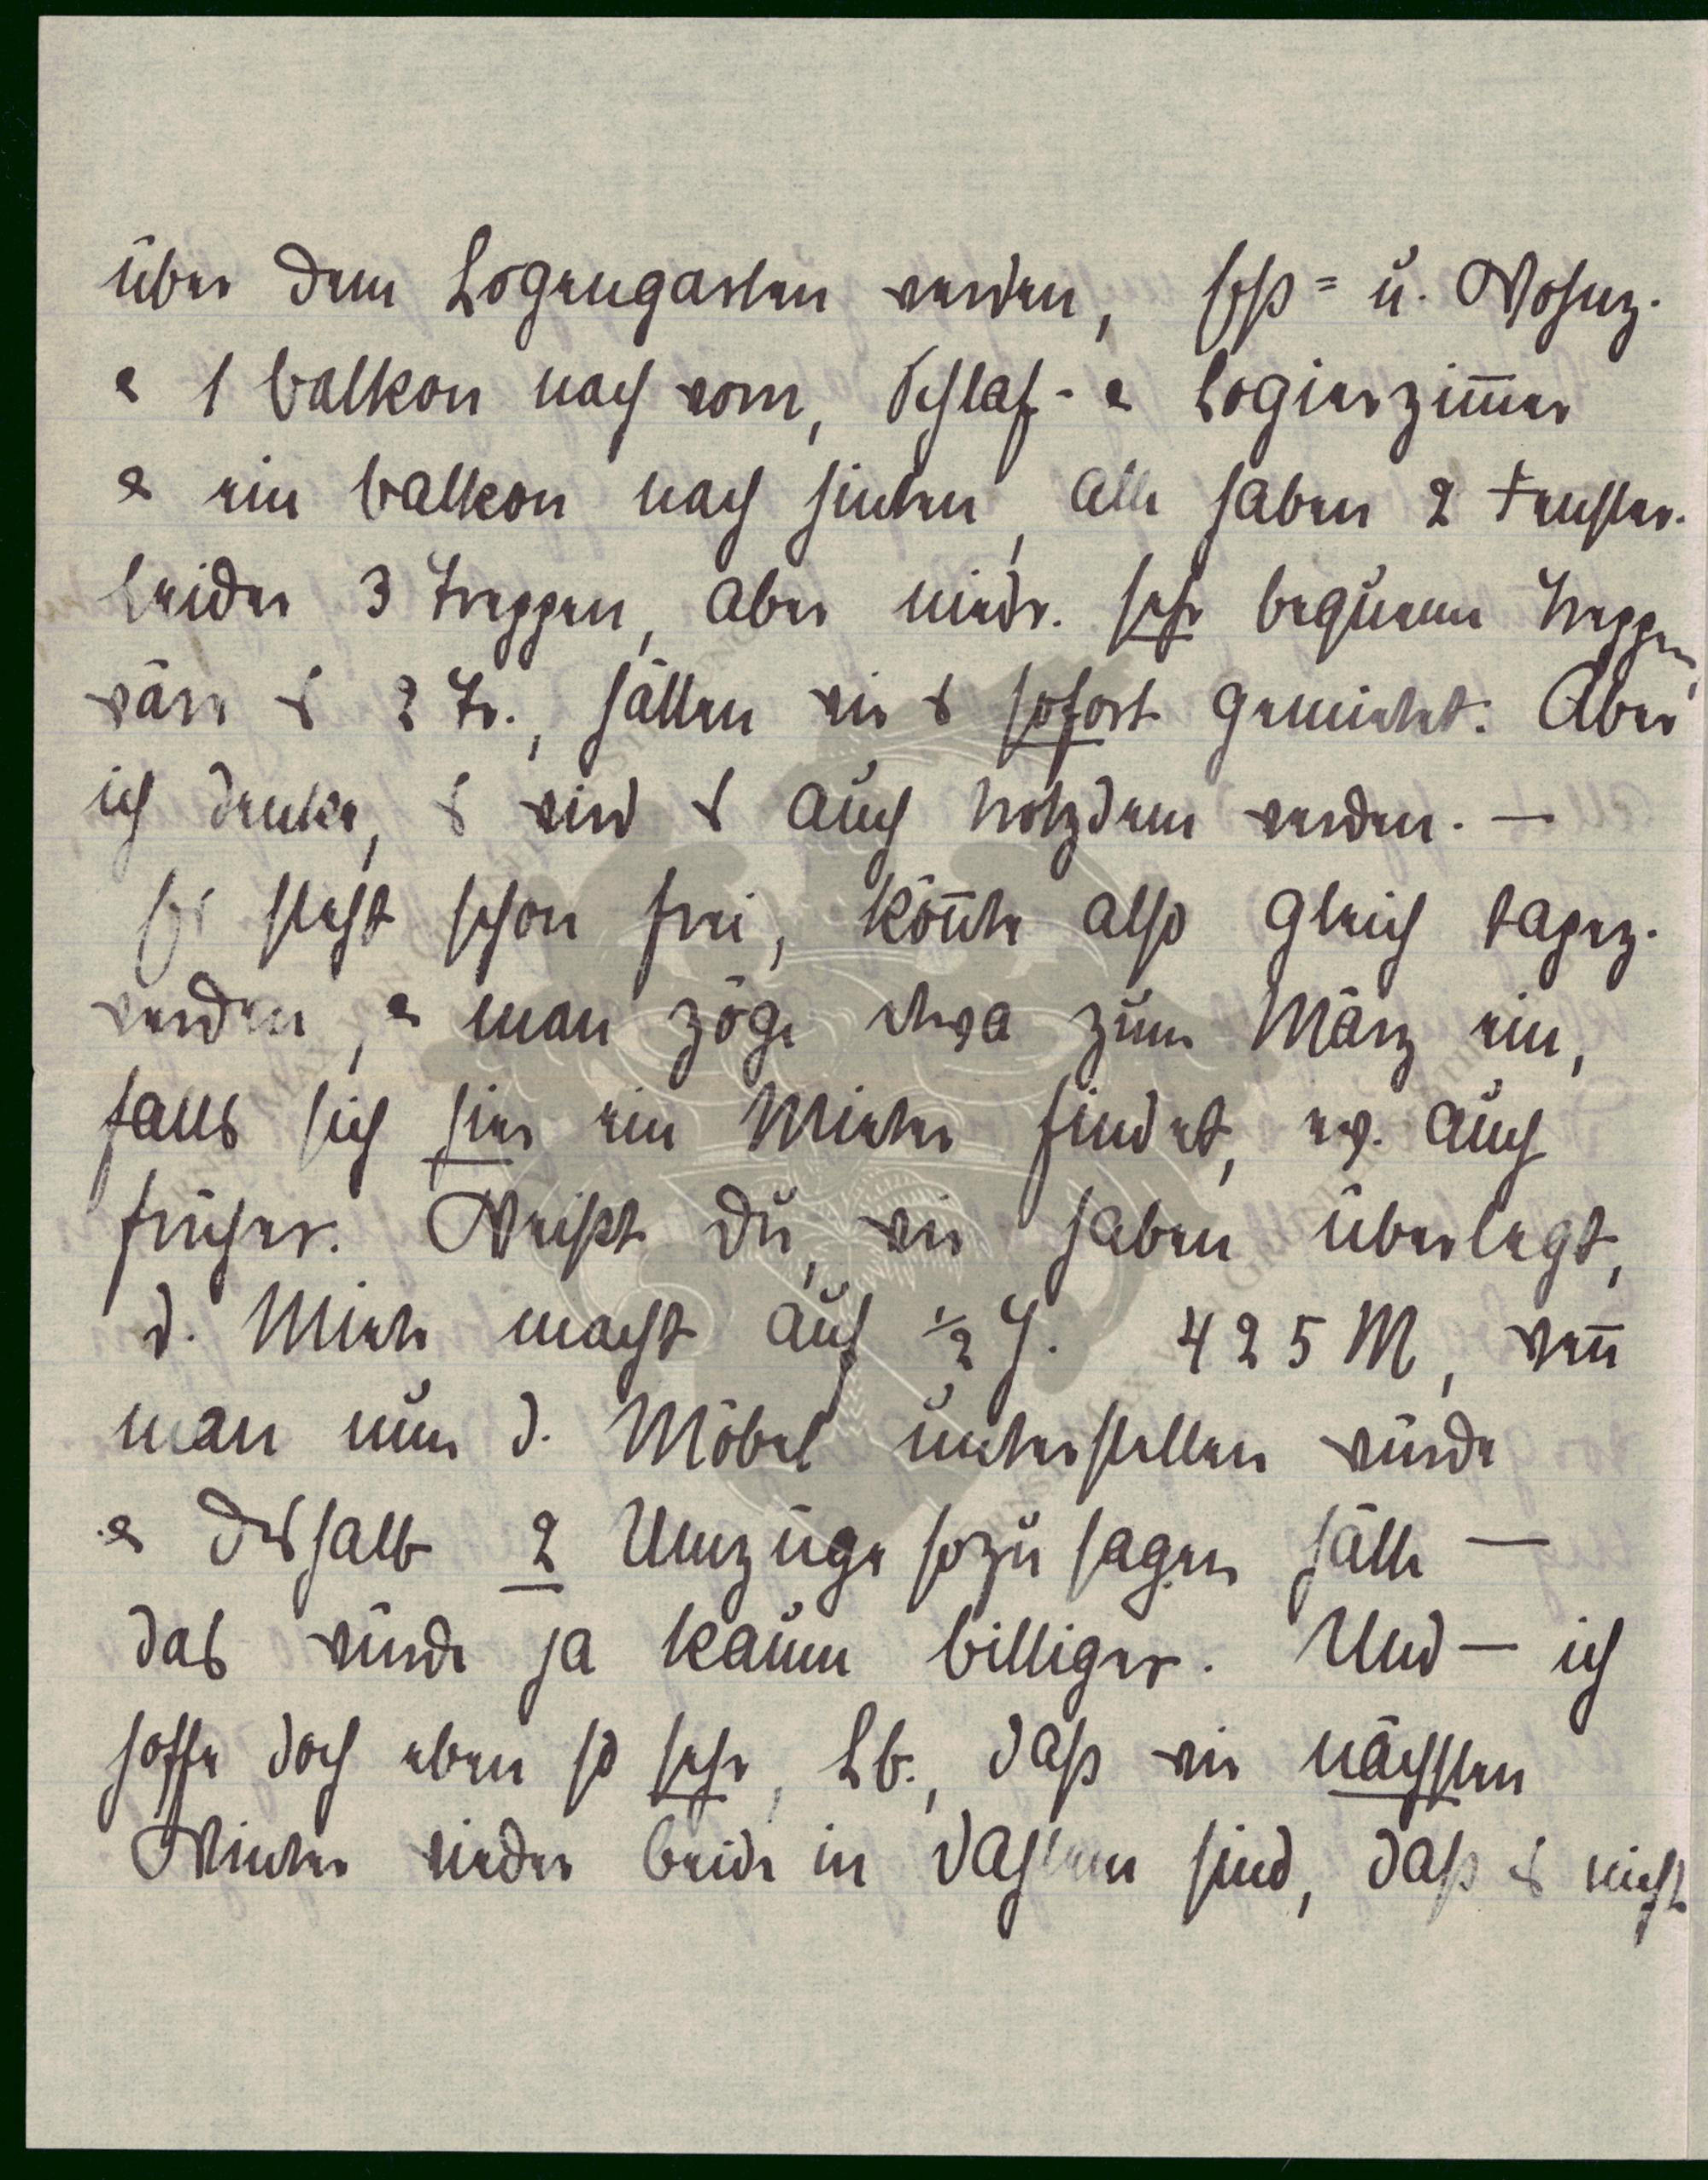 über dem Logengarten werden, Eß= u. Wohnz.
& 1 Balkon nach vorn, Schlaf- & Logierzim̅er
& ein Balkon nach hinten, alle haben 2 Fenster.
Leider 3 Treppen, aber niedr. sehr bequeme Treppen,
wäre es 2 Tr., hätten wir es sofort gemietet. Aber
ich denke, es wird es auch trotzdem werden. —
Es steht schon frei, kön̅te also gleich tapez.
werden, & man zöge etwa zum März ein,
falls sich hier ein Mieter findet, ev. auch
früher. Weißt Du, wir haben überlegt,
d. Miete macht auf ½ J. 425 M, wen̅
man nun d. Möbel unterstellen würde
& deshalb 2 Umzüge sozusagen hätte —
das würde ja kaum billiger. Und — ich
hoffe doch eben so sehr, Lb., daß wir nächsten
Winter wieder beide in Dahlem sind, daß es nicht